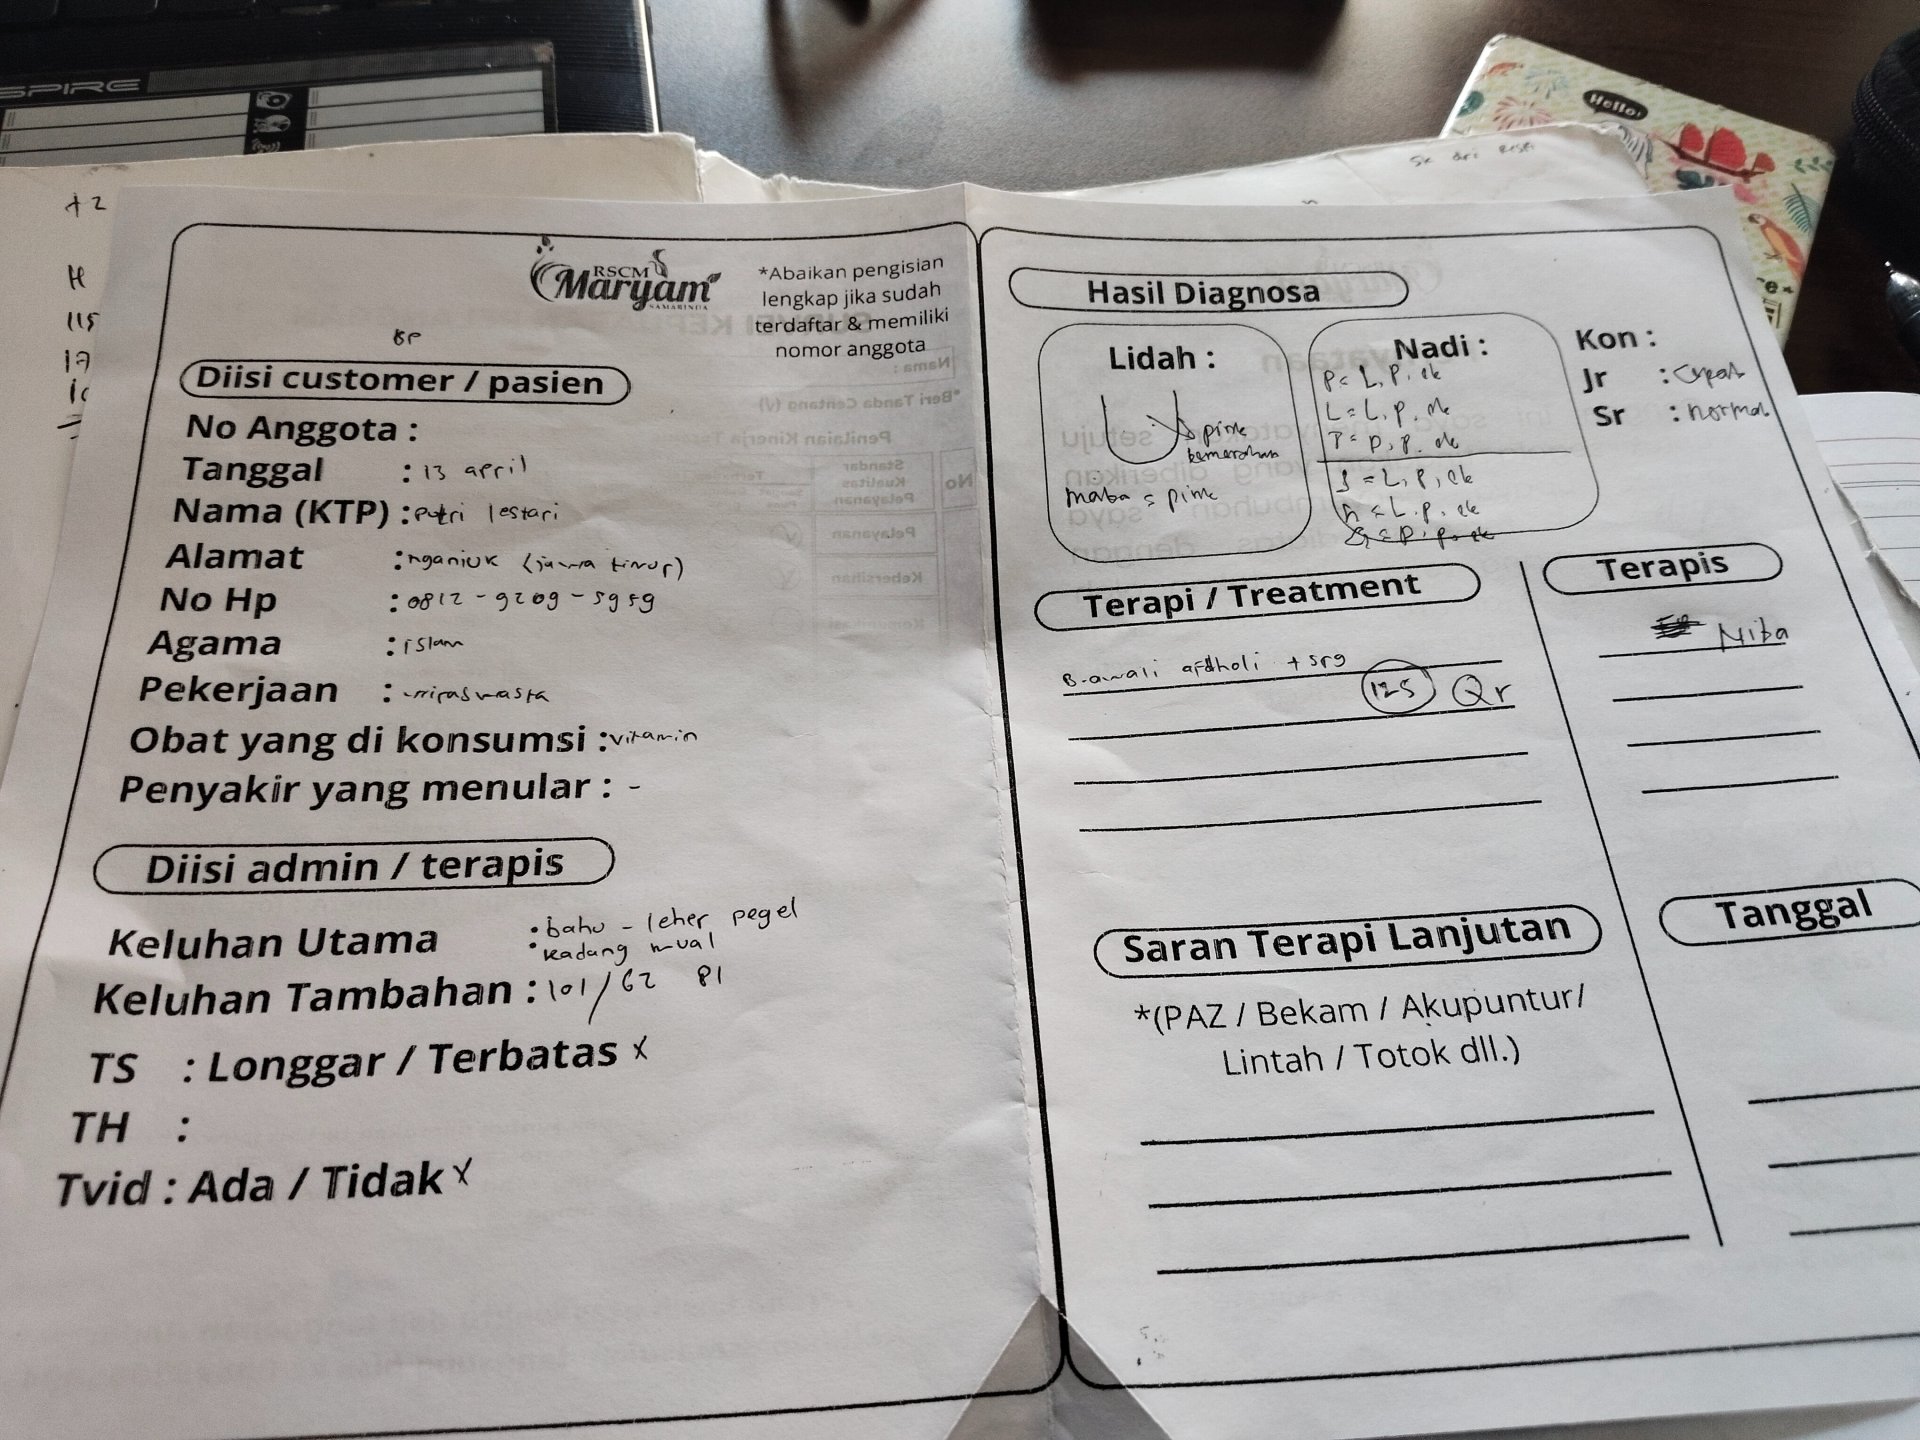 SPIRE
Hello!
+2
H
115
17
RSCM
Maryam
SAMARINDA
*Abaikan pengisian
lengkap jika sudah
terdaftar & memiliki
nomor anggota
BP
Diisi customer / pasien
No Anggota :
Tanggal : 13 april
Nama (KTP) : putri lestari
Alamat : nganjuk (jawa timur)
No Hp : 0812 - 9209 - 5959
Agama : islam
Pekerjaan : wiraswasta
Obat yang di konsumsi : vitamin
Penyakir yang menular : -
Diisi admin / terapis
Keluhan Utama : • bahu - leher pegel
• kadang mual
Keluhan Tambahan : 101/62 81
TS : Longgar / Terbatas x
TH :
Tvid : Ada / Tidak x
Hasil Diagnosa
Lidah :
pink
kemerahan
maba = pink
Nadi :
P = L, P, ek
L = L, P, ek
T = P, P, ek
J = L, P, ek
h = L, P, ek
G = P, P, ek
Kon :
Jr : cepat
Sr : normal
Terapi / Treatment
B.awali afdholi + srg
125 Qr
Terapis
Miba
Saran Terapi Lanjutan
*(PAZ / Bekam / Akupuntur/
Lintah / Totok dll.)
Tanggal